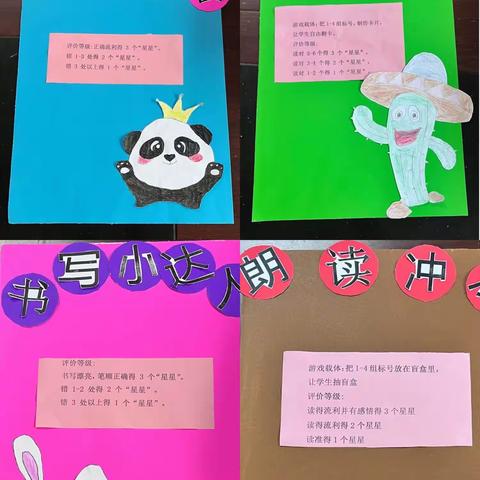 评价等级:正确流利得 3 个“星星”。
错 1-3 处得 2 个“星星”。
错 3 处以上得 1 个“星星”。
游戏载体:把 1-4 组标号,制作卡片,
让学生自由翻卡。
评价等级:
读对 5-6个得 3 个“星星”。
读对 3-4 个得 2 个“星星”。
读对 1-2 个得 1 个“星星”。
书写小达人
评价等级:
书写漂亮,笔顺正确得 3 个“星星”。
错 1-2 处得 2 个“星星”。
错 3 处以上得 1 个“星星”。
朗读冲
游戏载体:把 1-4 组标号放在盲盒里,
让学生抽盲盒
评价等级:
读得流利并有感情得 3 个星星
读得流利得 2 个星星
读准得 1 个星星